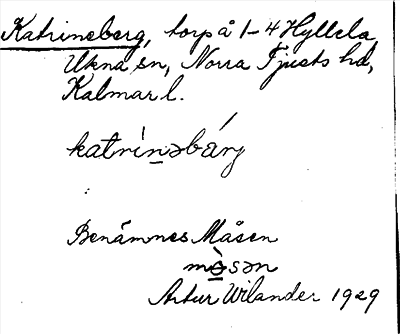 Katrineberg, torp å 1-4 Hyllela
Ukna sn, Norra Tjusts hd,
Kalmar l.
katrìnəbárj
Benämnes Måsen
mòsən
Artur Wilander 1929